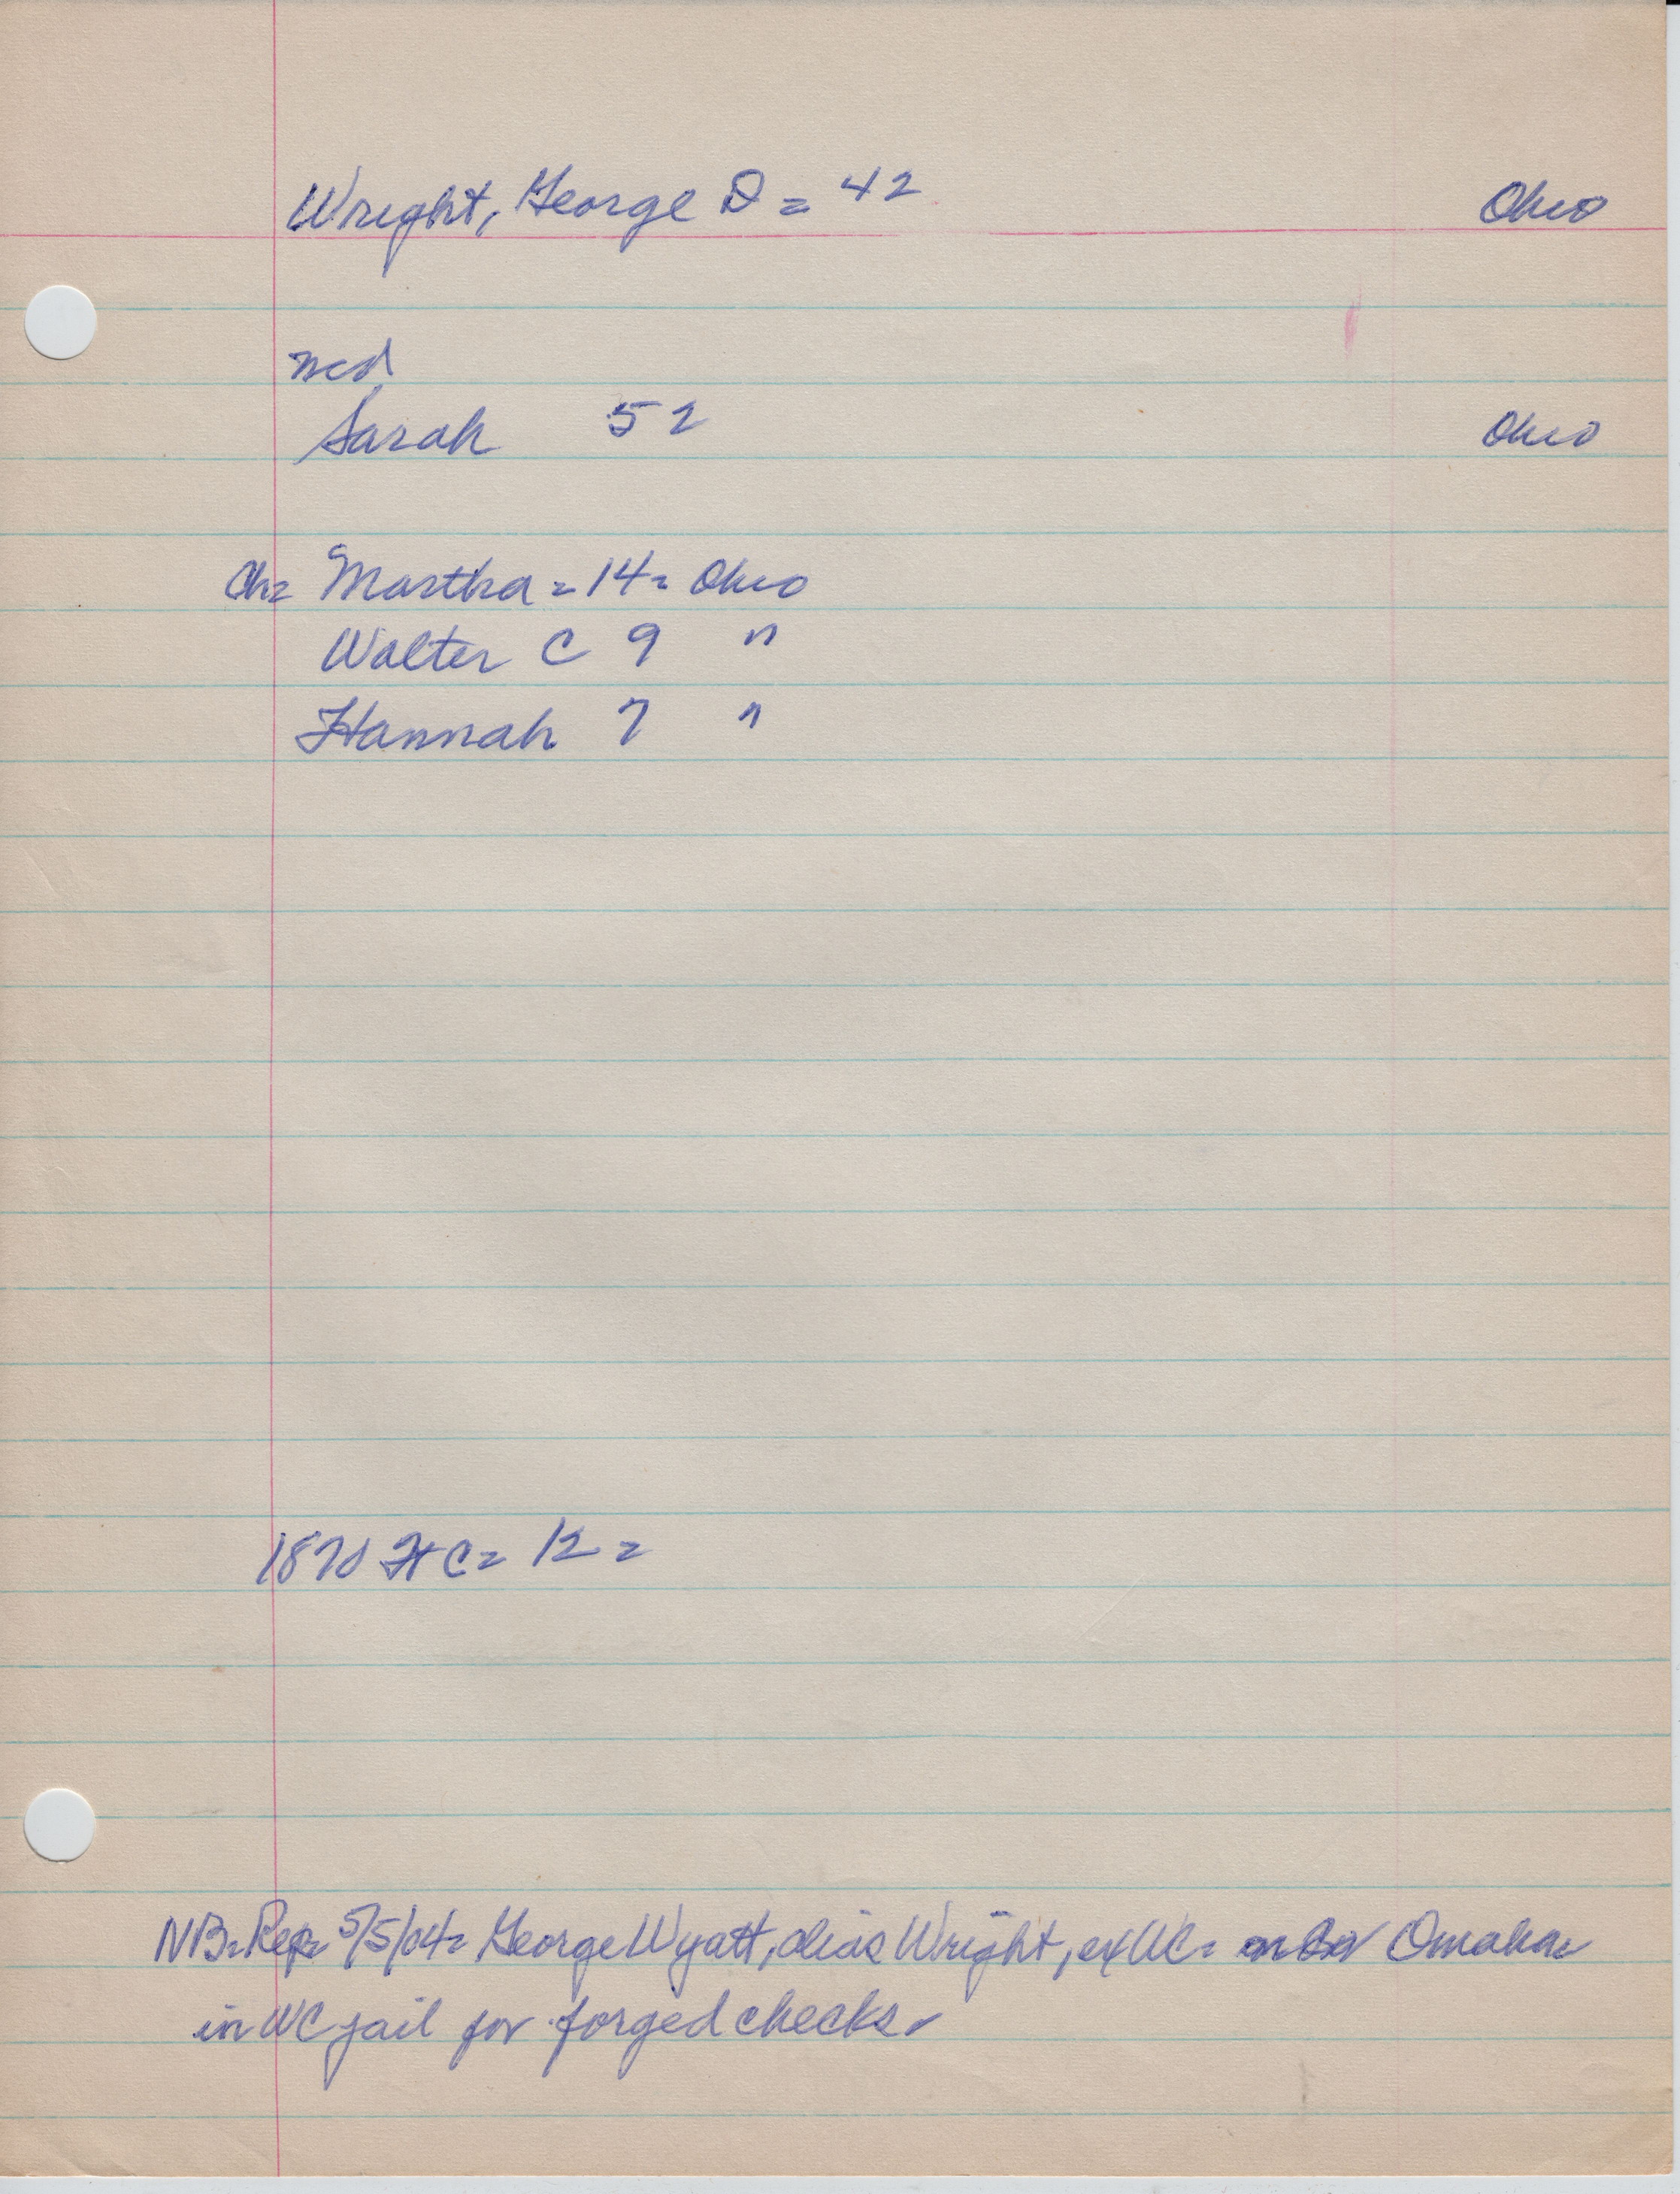 Wright, George D = 42 Ohio
md
Sarah 52 Ohio
Ch = Martha = 14 = Ohio
Walter C 9 "
Hannah 7 "
1870 C = 12 =
NB = Rep = 5/5/04 = George Wyatt, alias Wright, ex WC = Omaha
in WC jail for forged checks